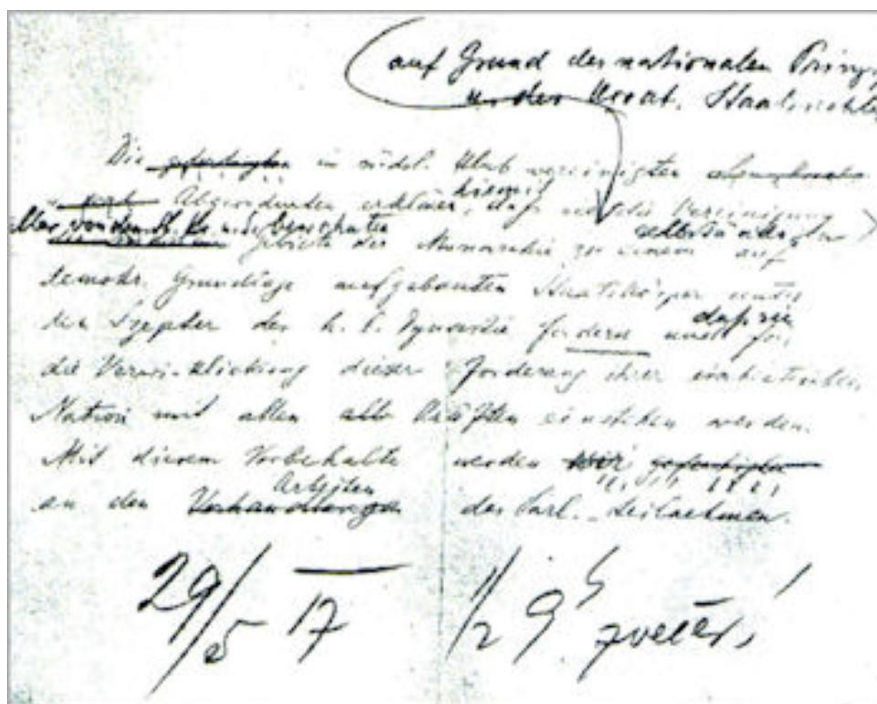 auf Grund des nationalen Prinz.
u. des kroat. Staatsrechtes
Die gefertigten in südsl. Klub vereinigten
Abgeordneten erklären, hiemit daß sie die Vereinigung
aller von den Sl. Kr. u. Serben
Gebiete der Monarchie zu einem selbständigen auf
demokr. Grundlage aufgebauten Staatskörper unter
dem Szepter der h. l. Dynastie fordern und daß sie für
die Verwirklichung dieser Forderung ihrer einheitlichen
Nation mit allen Kräften einstehen werden.
Mit diesem Vorbehalte werden wir gefertigten
an den Verhandlungen Arbeiten des Parl. teilnehmen.
29/5 17 1/2 9h zvečer